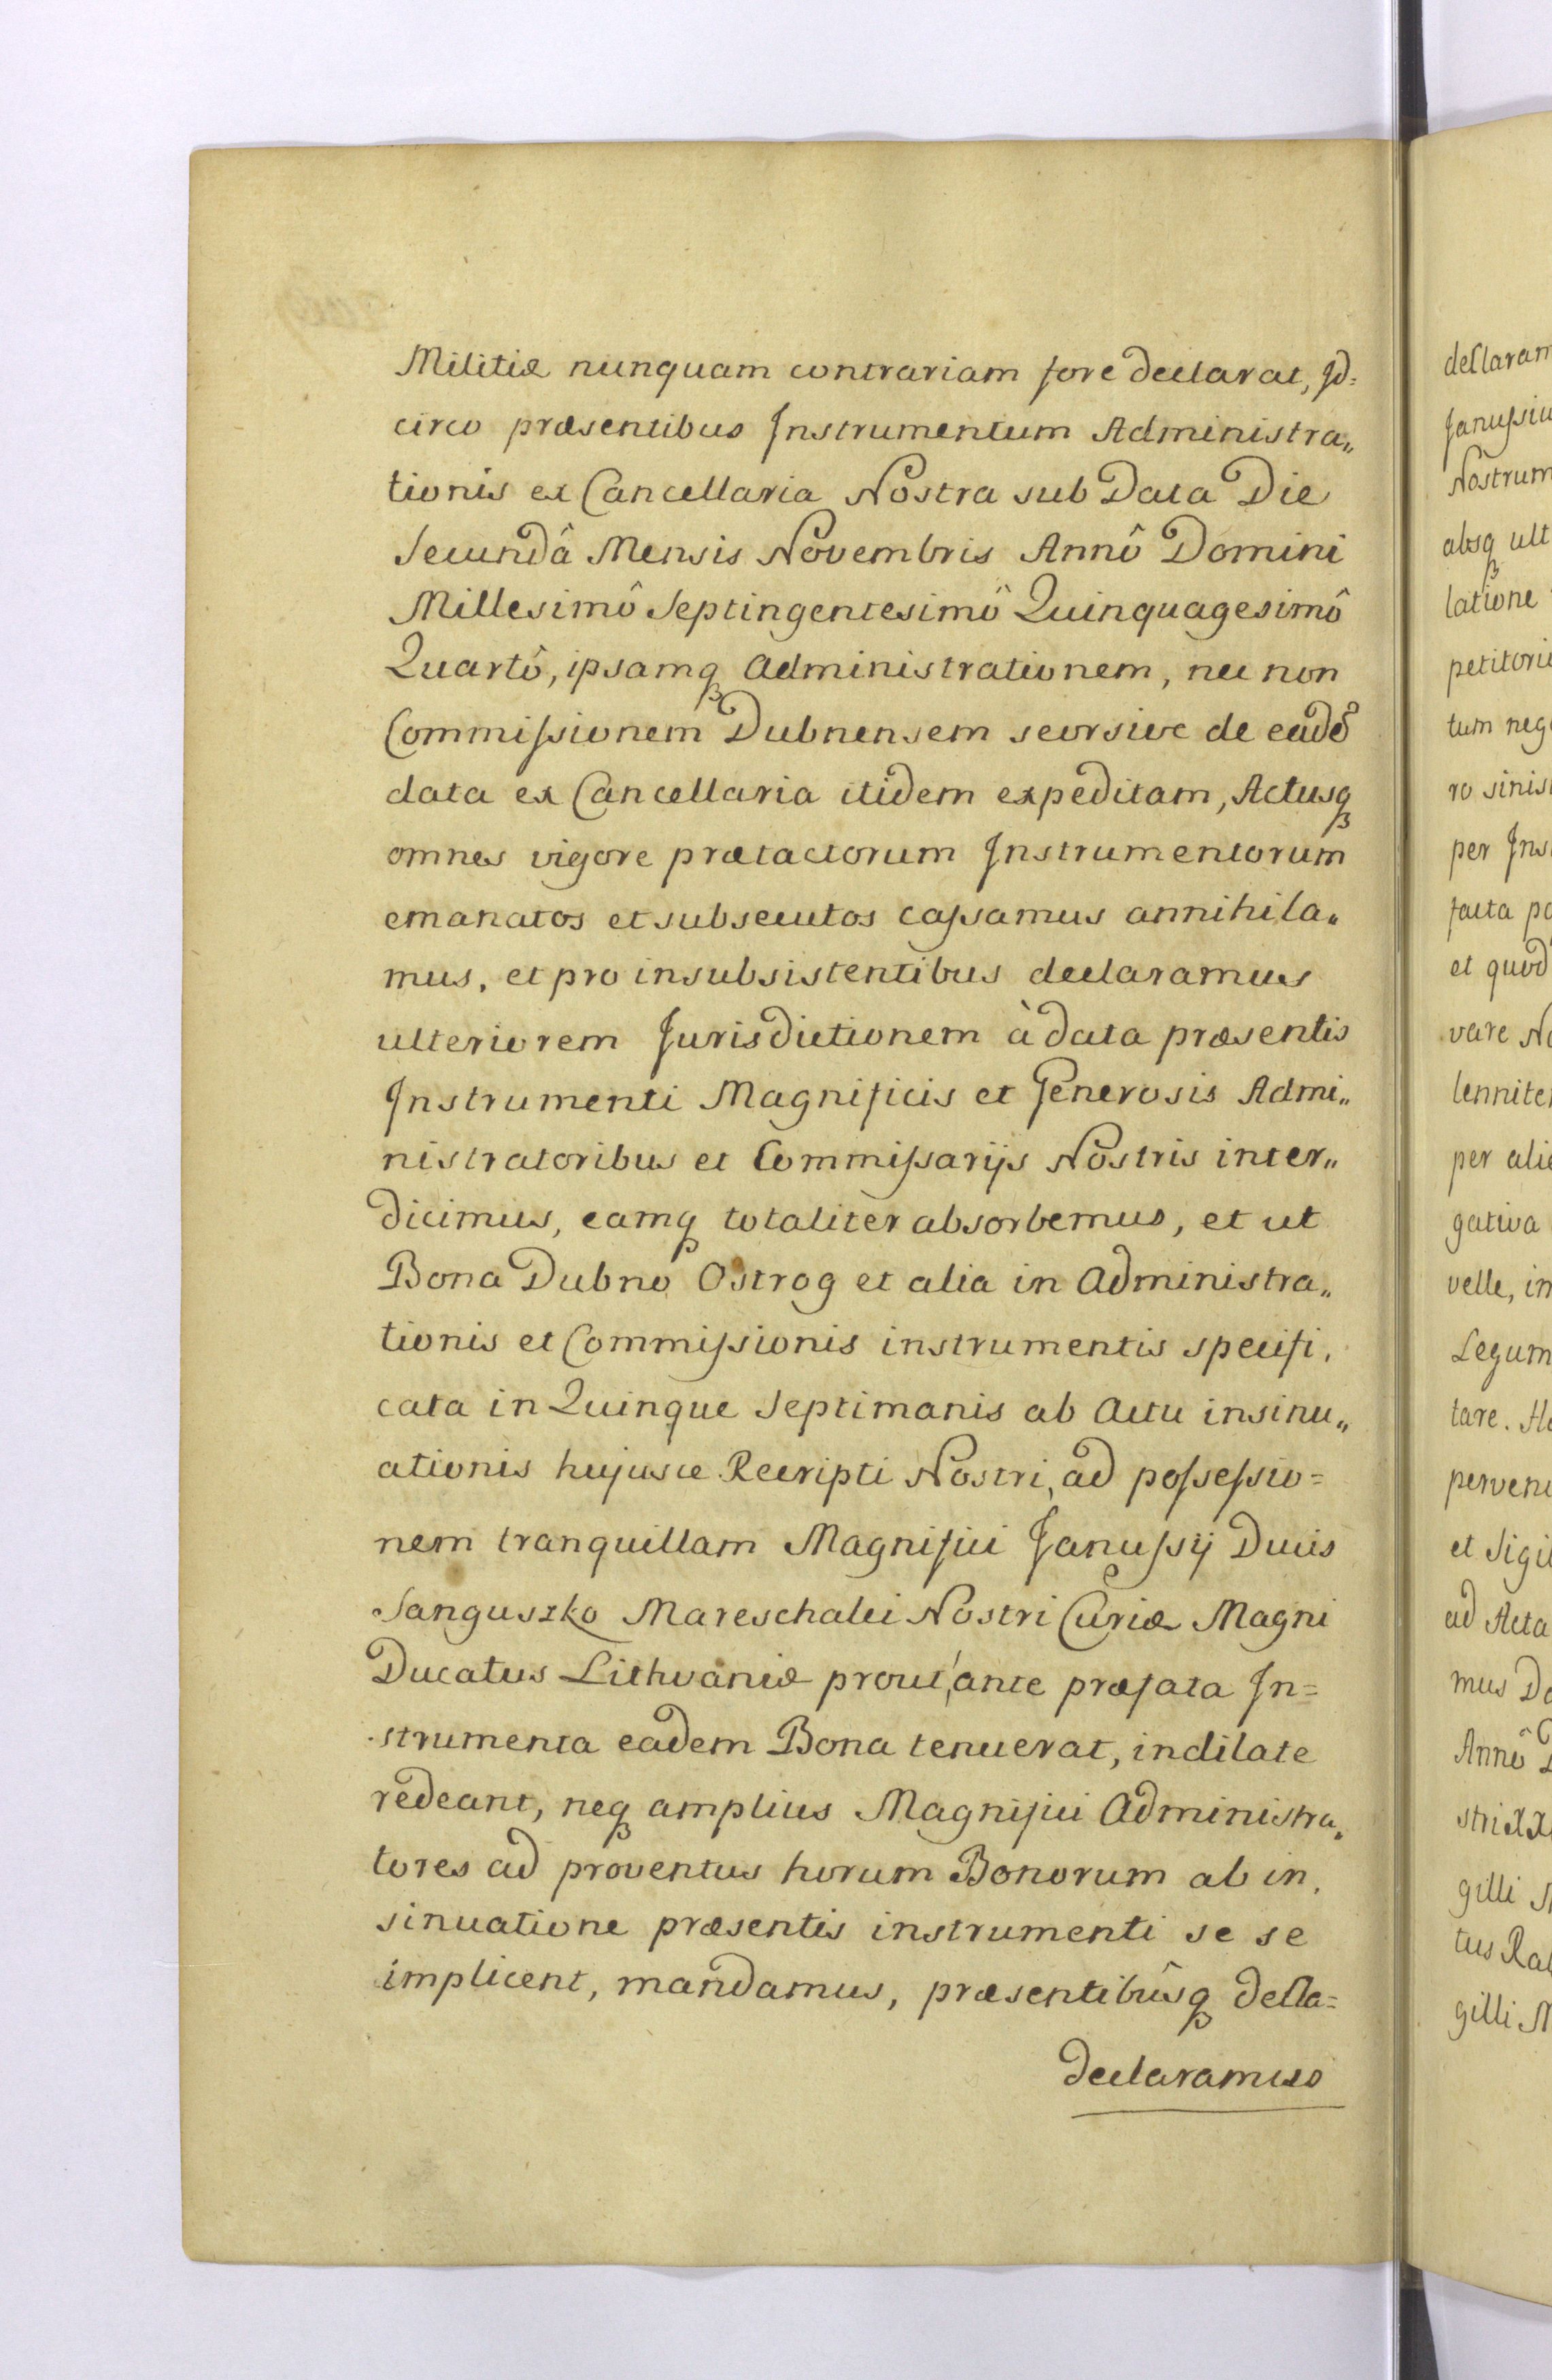 Militiæ nunquam contrariam fore declarat, Id=
circo præsentibus Instrumentum Administra„
tionis ex Cancellaria Nostra sub Data Die
Secundâ Mensis Novembris Annô Domini
Millesimô Septingentesimô Quinquagesimô
Quartô, ipsamq Administrationem, nec non
Commissionem Dubnensem seorsive de eadẽ
data ex Cancellaria itidem expeditam, Actusq
omnes vigore prætactorum Instrumentorum
emanatos et subsecutos cassamus annihila„
mus, et pro insubsistentibus declaramus
ulteriorem Jurisdictionem à data præsentis
Instrumenti Magnificis et Generosis Admi„
nistratoribus et Commissarijs Nostris inter„
dicimus, eamq totaliter absorbemus, et ut
Bona Dubno Ostrog et alia in Administra„
tionis et Commissionis instrumentis specifi,
cata in Quinque Septimanis ab Actu insinu„
ationis hujusce Recripti Nostri, ad possessio=
nem tranquillam Magnifici Janussij Ducis
Sanguszko Mareschalci Nostri Curiæ Magni
Ducatus Lithvaniæ prout, ante præfata In=
strumenta eadem Bona tenuerat, indilate
redeant, neq amplius Magnifici Administra„
tores ad proventus horum Bonorum ab in,
sinuatione præsentis instrumenti se se
implicent, mandamus, præsentibûsq decla=
declaramus
declaram
Janussiu
Nostrum
absq ult
latione
petitori
tum neg
ro sinis
per Ins
facta po
et quod
vare No
lennite
per ali
gativa
velle, in
Legum
tare. H
perven
et Sigil
ad Acta
mus D
Annô D
stri
gilli
tus Ra
gilli M